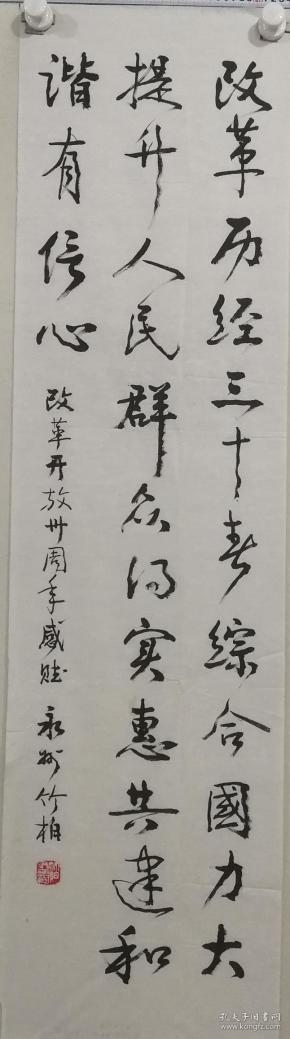 改革历经三十春綜合國力大
提升人民群众得实惠共建和
谐有信心
改革开放卅周年感赋 永州竹柏
孔夫子旧书网